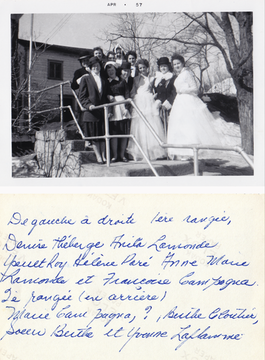 APR • 57
De gauche à droite 1ère rangée,
Denise Théberge Anita Lamonde
Roy Hélène Paré Anne Marie
Lamonde et Francoise Campagna.
2e rangée (en arrière)
Marie Campagna, ?, Berthe Cloutier,
Soeur Berthe et Yvonne Laflamme